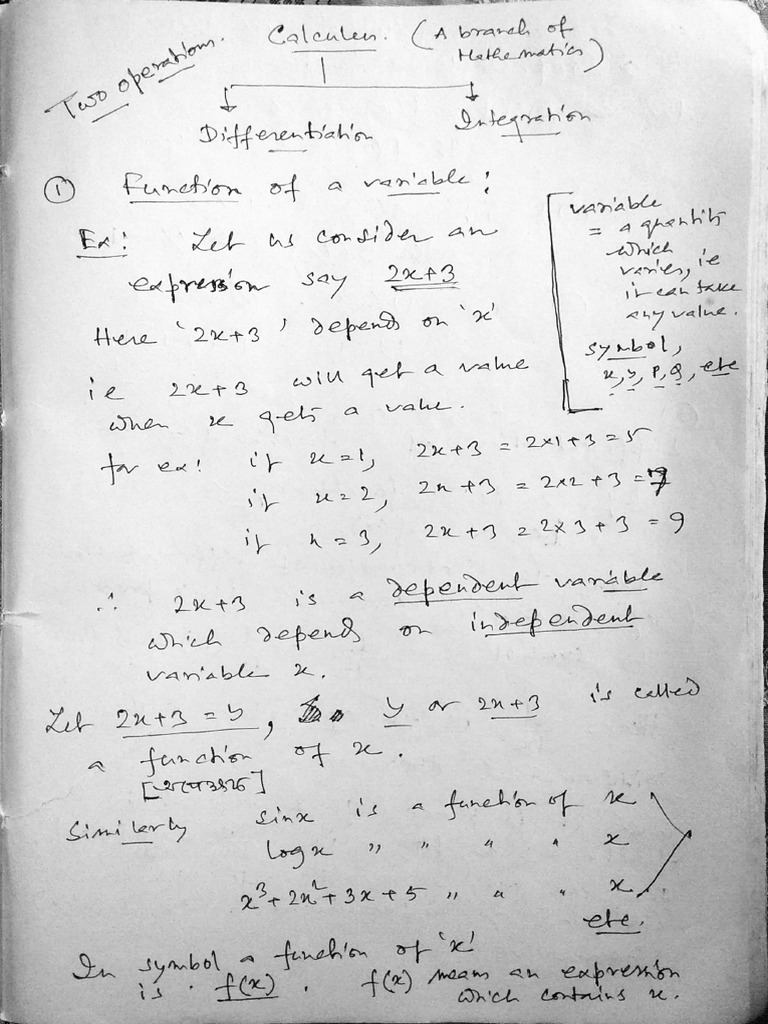 Two operations. Calculus. (A branch of
Mathematics)
Differentiation Integration
① Function of a variable:
Ex: Let us consider an
expression say 2x+3
Here '2x+3' depends on 'x'
ie 2x+3 will get a value
when x gets a value.
variable
= a quantity
which
varies, ie
it can take
any value.
symbol,
x, y, P, Q, etc
for ex: if x=1, 2x+3 = 2×1+3=5
if x=2, 2x+3 = 2×2+3=7
if x=3, 2x+3 = 2×3+3 = 9
∴ 2x+3 is a dependent variable
which depends on independent
variable x.
Let 2x+3 = y, y or 2x+3 is called
a function of x.
Similarly sinx is a function of x
logx " " " " x
x³+2x²+3x+5 " " " x.
etc.
In symbol a function of 'x'
is f(x). f(x) means an expression
which contains x.